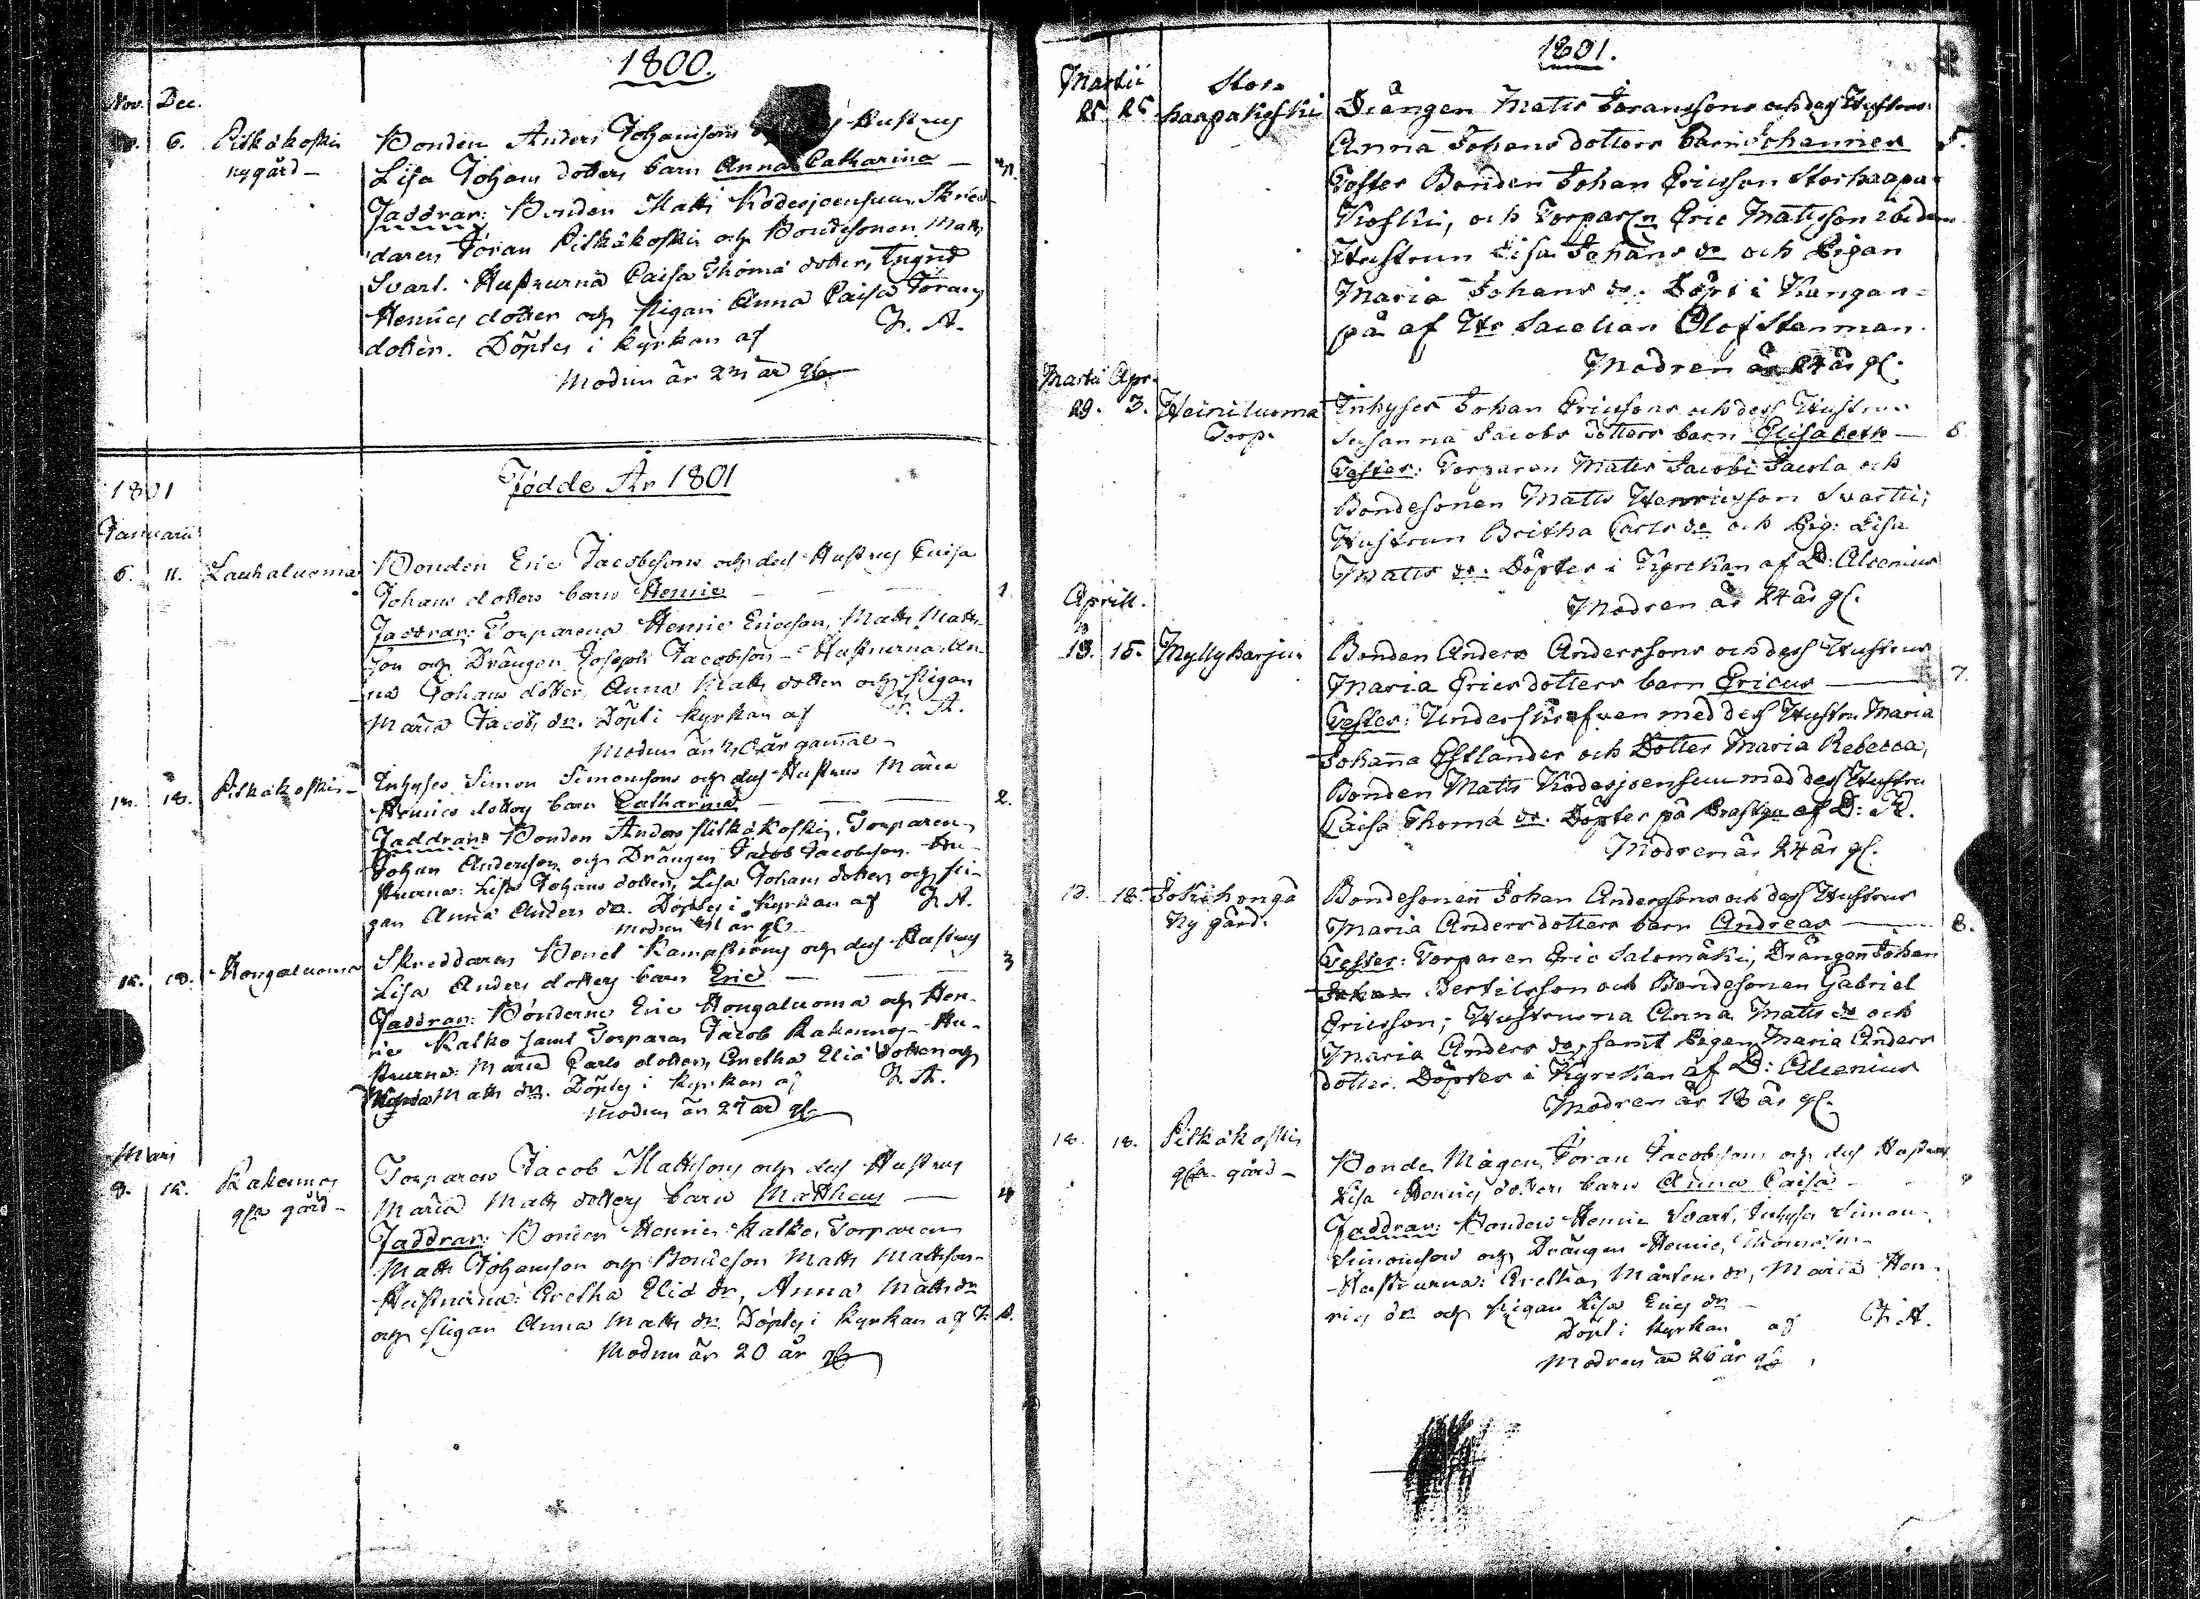 1800.
Nov. Dec.
6. Pitkäkoski nygård —
Bonden Anders Johanssons Hustrus
Lisa Johans dotters barn Anna Catharina —
Faddrar: Bonden Matts Kodesjoensuu, Skräd-
daren Jöran Pitkäkoski och Bondesonen Matts
Svart. Hustrurna Caisa Thomæ dotter, Ingrid
Henrics dotter och Pigan Anna Caisa Jörans
dotter. Döptes i Kyrkan af
Modren är år gl.
Födde År 1801
1801
Januarii
6. 11. Lauhaluoma
Bonden Eric Jacobssons och des Hustrus Caisa
Johans dotters barn Henric — 1
Faddrar: Torparena Henric Ericsson, Matts Matts-
son och Drängen Joseph Jacobsson — Hustrurna An-
na Johans dotter, Anna Matts dotter och Pigan
Maria Jacobs dr. Döpt i Kyrkan af
Modren är år gammal —
18. Pitkäkoski —
Inhyses Simon Simonssons och des Hustrus Maria
Henrics dotters barn Catharina — 2.
Faddrar: Bonden Anders Pitkäkoski, Torparen
Johan Andersson och Drängen Jacob Jacobsson. Hu-
strurna: Lisa Johans dotter, Lisa Johans dotter och Pi-
gan Anna Anders dr. Döptes i Kyrkan af
Modren 41 år gl.
18. Hongaluoma
Skreddaren Bengt Kampströms och des Hustrus
Lisa Anders dotters barn Eric — 3
Faddrar: Bönderne Eric Hongaluoma och Hen-
ric Kalko samt Torparen Jacob Rakennus — Hu-
strurna: Maria Carls dotter, Gretha Eliæ dotter och
Matts dr. Döptes i Kyrkan af
Modren är 27 år gl.
Mars
9. 15. Rakennus gla gård —
Torparen Jacob Mattssons och des Hustrus
Maria Matts dotters barn Mattheus — 4
Faddrar: Bonden Henric Kalko, Torparen
Matts Johansson och Bondeson Matts Mattsson —
Hustrurna: Gretha Eliæ dr, Anna Matts dr
och Pigan Anna Matts dr. Döptes i Kyrkan af
Modren är 20 år gl.
1801.
Martii
25. 26. Stor-
haapakoski
Drängen Matts Jöranssons och dess Hustrus
Anna Johans dotters barn Johannes 5.
Tester Bonden Johan Ericsson Storhaapa-
koski, och Torparen Eric Mattsson ibidem
Hustrun Lisa Johans dr och Pigan
Maria Johans dr. Döpt i Kungan-
pä af Hr Sacellan Olof Stenman.
Modren är 24 år gl.
Martii Apr.
29. 3. Heiniluoma Torp.
Inhyses Johan Ericssons och dess Hustrus
Susanna Jacobs dotters barn Elisabeth — 6
Tester: Torparen Matts Jacobi Jacola och
Bondesonen Matts Henricsson Svartti;
Hustrun Britha Carls dr och Pig: Lisa
Matts dr. Döptes i Kyrckan af D: Alcenius
Modren är 24 år gl.
Aprill.
13. 15. Myllykarju
Bonden Anders Anderssons och dess Hustrus
Maria Ericsdotters barn Ericus — 7.
Tester: Underskrefven med dess Hustru Maria
Johanna Estlander och Dotter Maria Rebecca,
Bonden Matts Kodesjoensuu med dess Hustru
Caisa Thomæ dr. Döptes på Prästgn af D: A.
Modren är 24 år gl.
13. 18. Jokihonga
Ny gård.
Bondesonen Johan Anderssons och dess Hustrus
Maria Andersdotters barn Andreas — 8.
Tester: Torparen Eric Salomäki, Drängen Johan
Bertilsson och Bondesonen Gabriel
Ericsson; Hustrurna Anna Matts dr och
Maria Anders dr, samt Pigan Maria Anders
dotter. Döptes i Kyrckan af D: Alcenius
Modren är 18 år gl.
18. 18. Pitkäkoski
gla gård —
Bonde Mågen Jöran Jacobssons och des Hustrus
Lisa Henrics dotters barn Anna Caisa —
Faddrar: Bonden Henric Svart, Inhyses Simon
Simonsson och Drängen Henric Thomasson —
Hustrurna: Gretha Mårtens dr, Maria Hen-
rics dr och Pigan Lisa Erics dr —
Döpt i Kyrkan af
Modren är 26 år gl.